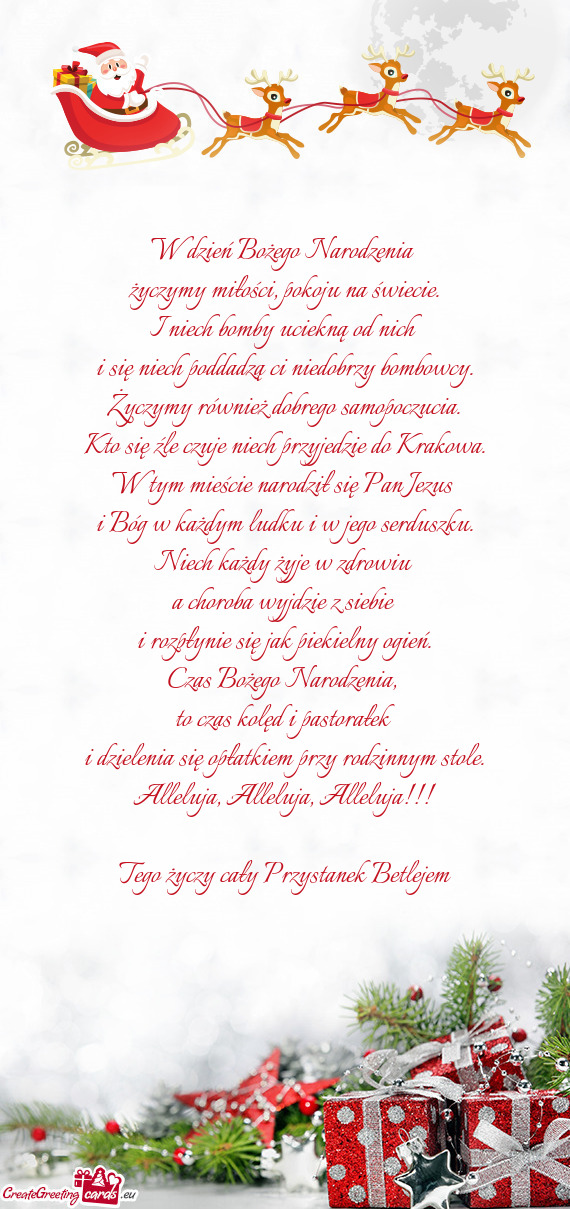 W dzień Bożego Narodzenia
życzymy miłości, pokoju na świecie.
I niech bomby uciekną od nich
i się niech poddadzą ci niedobrzy bombowcy.
Życzymy również dobrego samopoczucia.
Kto się źle czuje niech przyjedzie do Krakowa.
W tym mieście narodził się Pan Jezus
i Bóg w każdym ludku i w jego serduszku.
Niech każdy żyje w zdrowiu
a choroba wyjdzie z siebie
i rozpłynie się jak piekielny ogień.
Czas Bożego Narodzenia,
to czas kolęd i pastorałek
i dzielenia się opłatkiem przy rodzinnym stole.
Alleluja, Alleluja, Alleluja!!!
Tego życzy cały Przystanek Betlejem
CreateGreeting cards .eu